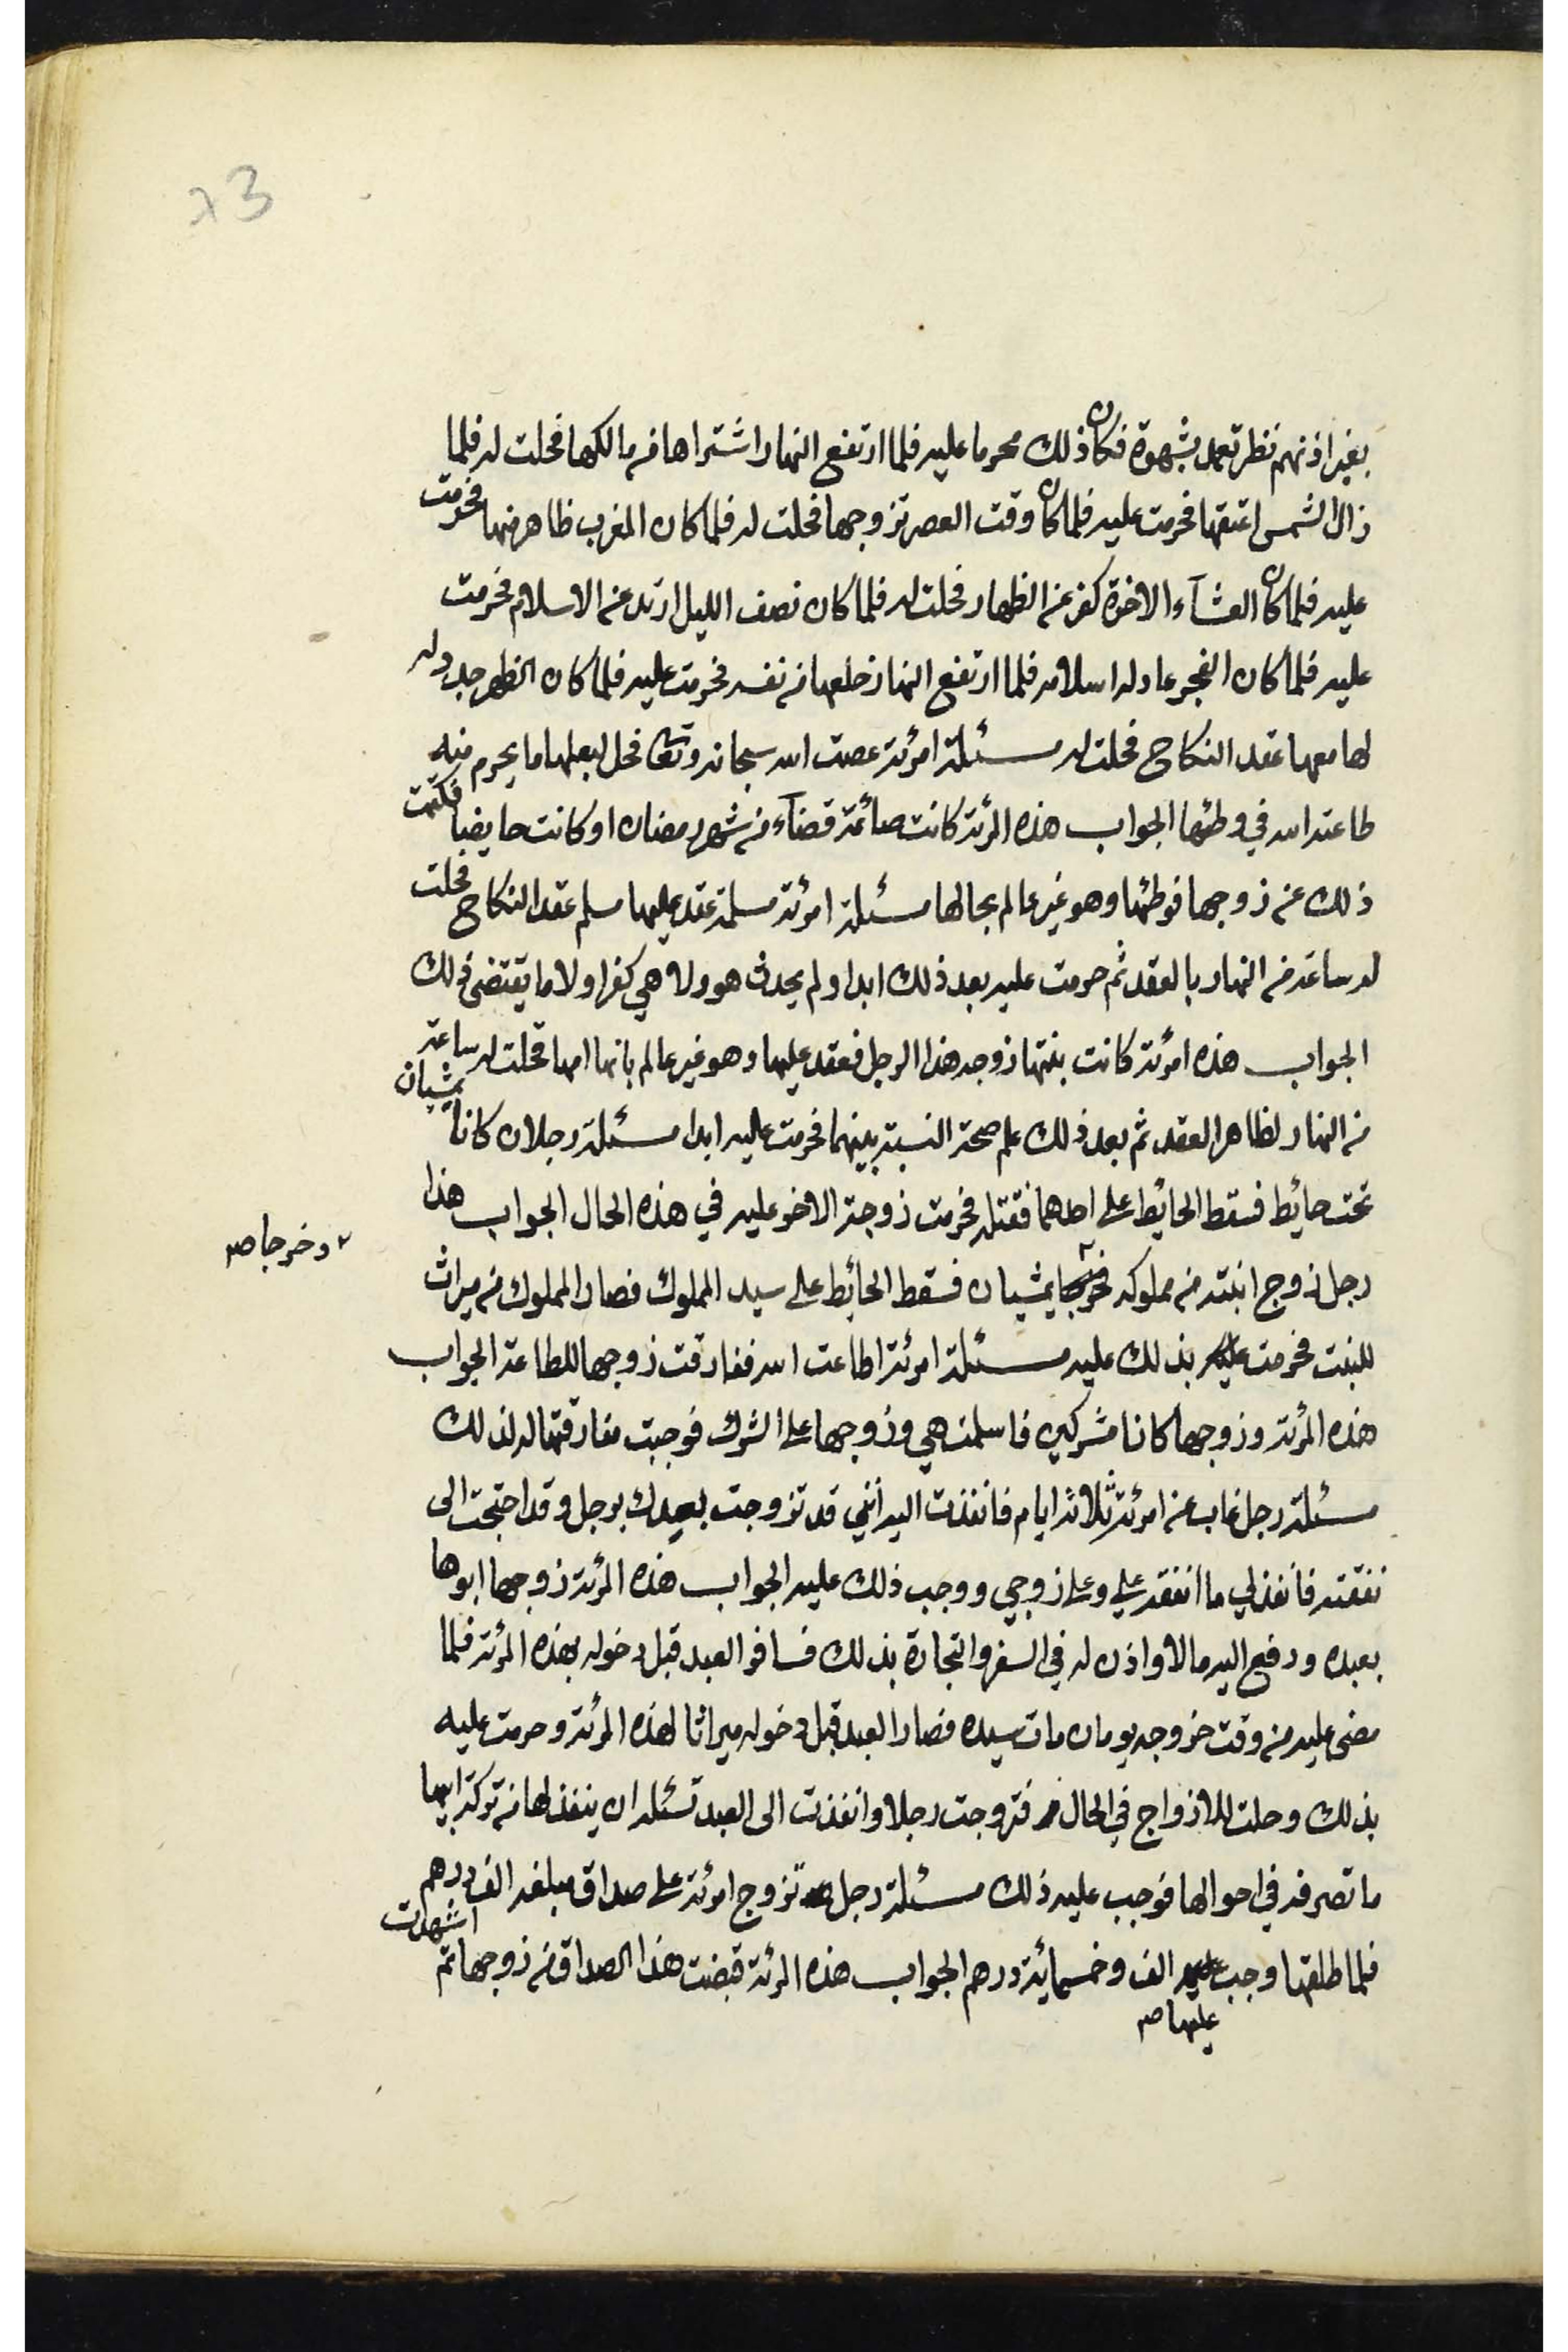 23
بغير اذنهم نظر تعمل بشهوة فكان ذلك محرما عليه فلما ارتفع النهار اشتراها من مالكها فحلت له فلما
زال الشمس اعتقها فحرمت عليه فلما كان وقت العصر تزوجها فحلت له فلما كان المغرب ظاهر منها فحرمت
عليه فلما كان العشآء الاخرة كفر عن الظهار فحلت له فلما كان نصف الليل ارتد عن الاسلام فحرمت
عليه فلما كان الفجر عاد له اسلامه فلما ارتفع النهار خلعها من نفسه فحرمت عليه فلما كان الظهر جدد له
لها معها عقد النكاح فحلت له مسئلة امرئة عصت الله سبحانه وتعالى فحل لبعلها ما يحرم منه
طاعته الله في وطئها الجواب هذه المرئة كانت صائمة قضآء من شهر رمضان او كانت حايضا فكتمت
ذلك عن زوجها فوطئها وهو غير عالم بحالها مسئلة امرئة مسلمة عقد عليها مسلم عقد النكاح فحلت
له ساعة من النهار بالعقد ثم حرمت عليه بعد ذلك ابدا ولم يحدث هو ولا هي كفرا ولا ما يقتضى ذلك
الجواب هذه امرئة كانت بنتها زوجه هذا الرجل فعقد عليها وهو غير عالم بانها امها فحلت له ساعة
من النهار لظاهر العقد ثم بعد ذلك علم صحة النسبة بينهما فحرمت عليه ابدا مسئلة رجلان كانا يمشيان
تحت حائط فسقط الحائط على احدهما فقتله فحرمت زوجة الاخر عليه في هذه الحال الجواب هذا
رجل زوج ابنته من مملوكه فخرجا يمشيان فسقط الحائط على سيد المملوك فصار المملوك من ميراث
٢ وخرجا صح
للبنت فحرمت عليه بذلك عليه مسئلة امرئة اطاعت الله ففارقت زوجها للطاعة الجواب
هذه المرئة وزوجها كانا مشركين فاسلمت هي وزوجها على الشرك فوجبت مفارقتها له لذلك
مسئلة رجل غاب عن امرئة ثلاثة ايام فانفذت اليه انني قد تزوجت بعدك برجل وقد احتجت الى
نفقته فانفذ لي ما انفقه علي وعلى زوجي ووجب ذلك عليه الجواب هذه المرئة زوجها ابوها
بعبده ودفع اليه مالا واذن له في السفر والتجارة بذلك فسافر العبد قبل دخوله بهذه المرئة فلما
مضى عليه من وقت خروجه يومان مات سيده فصار العبد قبل دخوله ميراثا لهذه المرئة وحرمت عليه
بذلك وحلت للازواج في الحال فتزوجت رجلا وانفذت الى العبد تسئله ان ينفذ لها من تركة ابيها
ما تصرفه في احوالها فوجب عليه ذلك مسئلة رجل تزوج امرئة على صداق مبلغه الف درهم
فلما طلقها وجب عليه الف وخمسمائة درهم الجواب هذه المرئة قبضت هذا الصداق من زوجها ثم اشهدت
عليها صح